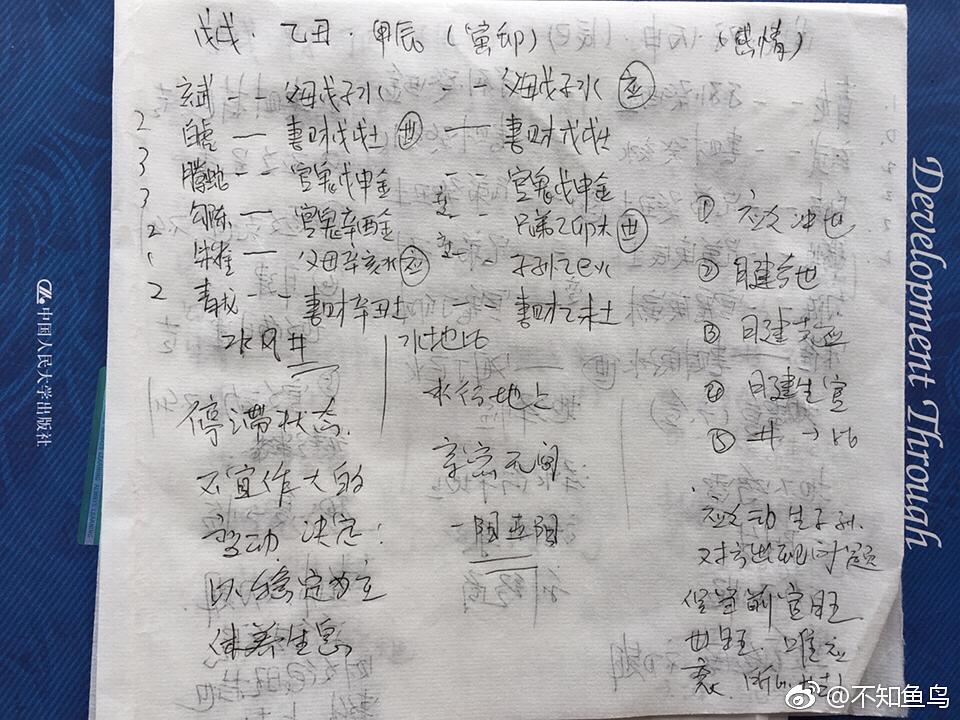 戊戌·乙丑·甲辰(寅卯) (感情)
玄武 -- 父母戊子水 -- 父母戊子水 应
2 白虎 — 妻财戊戌土 世 — 妻财戊戌土
3 腾蛇 -- 官鬼戊申金 -- 官鬼戊申金
3 勾陈 — 官鬼辛酉金 -- 兄弟乙卯木 世
2 朱雀 — 父母辛亥水 应 -- 子孙乙巳火
1
2 青龙 -- 妻财辛丑土 -- 妻财乙未土
水风井
水地比
停滞状态.
不宜作大的
变动 决定:
以稳定为主
休养生息
水行地上
亲密无间
① 应爻冲世
② 日建合世
③ 日建克应
④ 日建生官
⑤ 井→比
应爻动生子孙.
对方出现问题
官旺
世旺. 唯应
衰.
中国人民大学出版社
Development Through
@不知鱼鸟